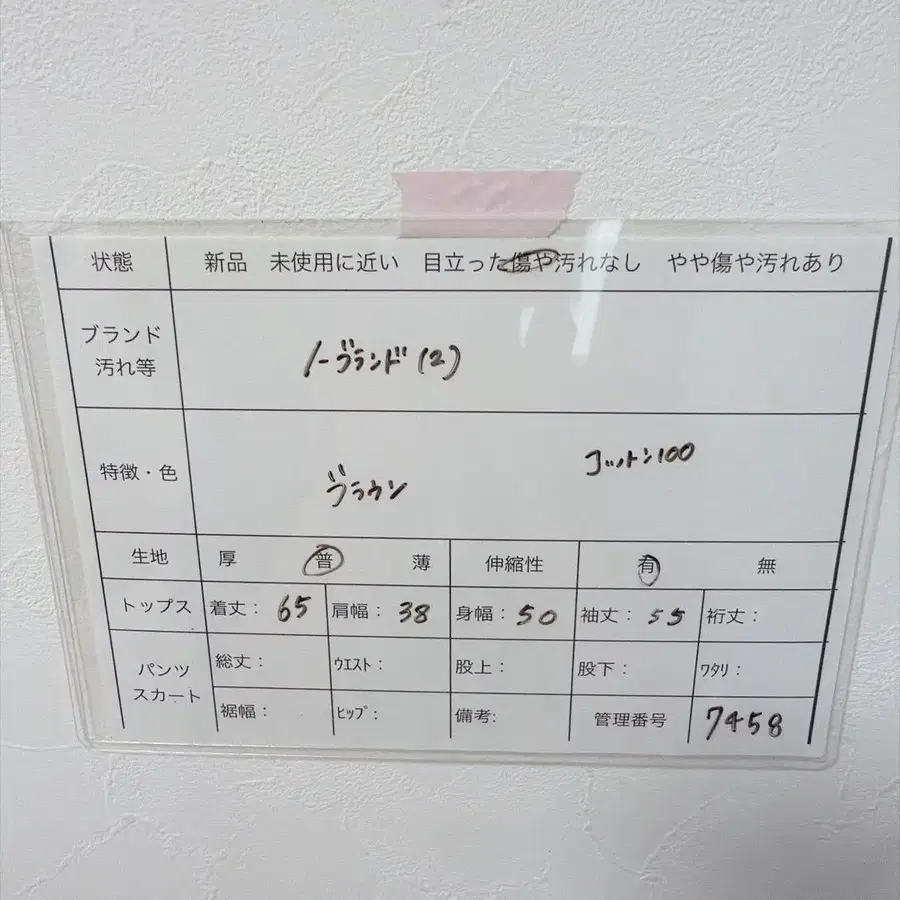 状態 新品 未使用に近い 目立った傷や汚れなし やや傷や汚れあり
ブランド
汚れ等
ノーブランド(2)
特徴・色
コットン100
ブラウン
生地 厚 普 薄 伸縮性 有 無
トップス 着丈： 65 肩幅： 38 身幅： 50 袖丈： 55 裄丈：
パンツ
スカート
総丈： ウエスト： 股上： 股下： ワタリ：
裾幅： ヒップ： 備考: 管理番号 7458